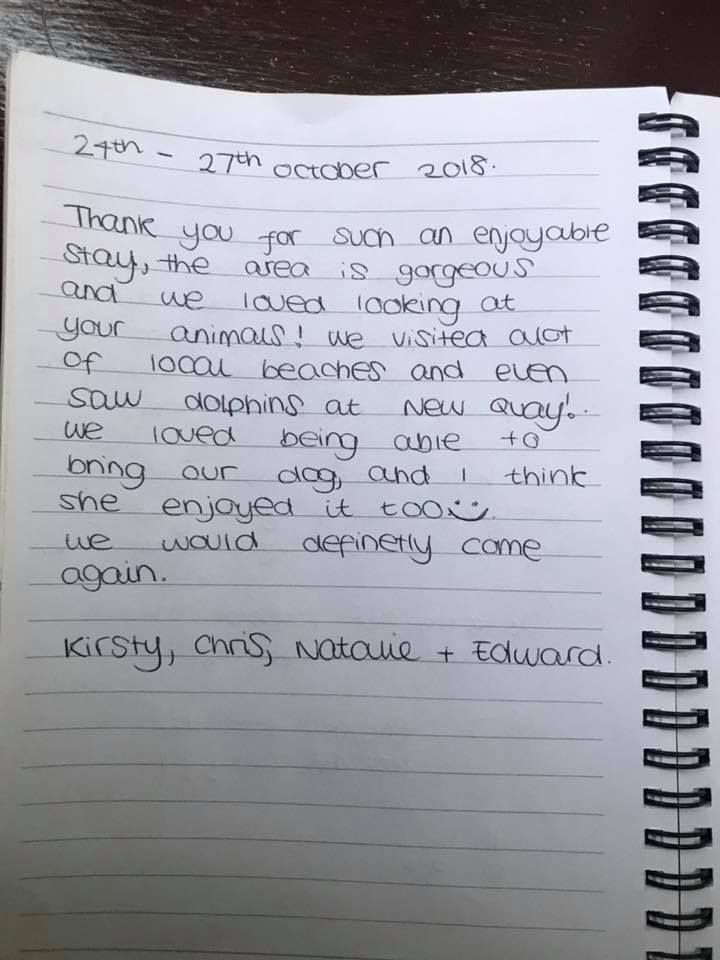 24th - 27th October 2018.
Thank you for such an enjoyable
stay, the area is gorgeous
and we loved looking at
your animals! We visited alot
of local beaches and even
saw dolphins at New Quay!.
We loved being able to
bring our dog, and I think
she enjoyed it too :)
We would definetly come
again.
Kirsty, Chris, Natalie + Edward.